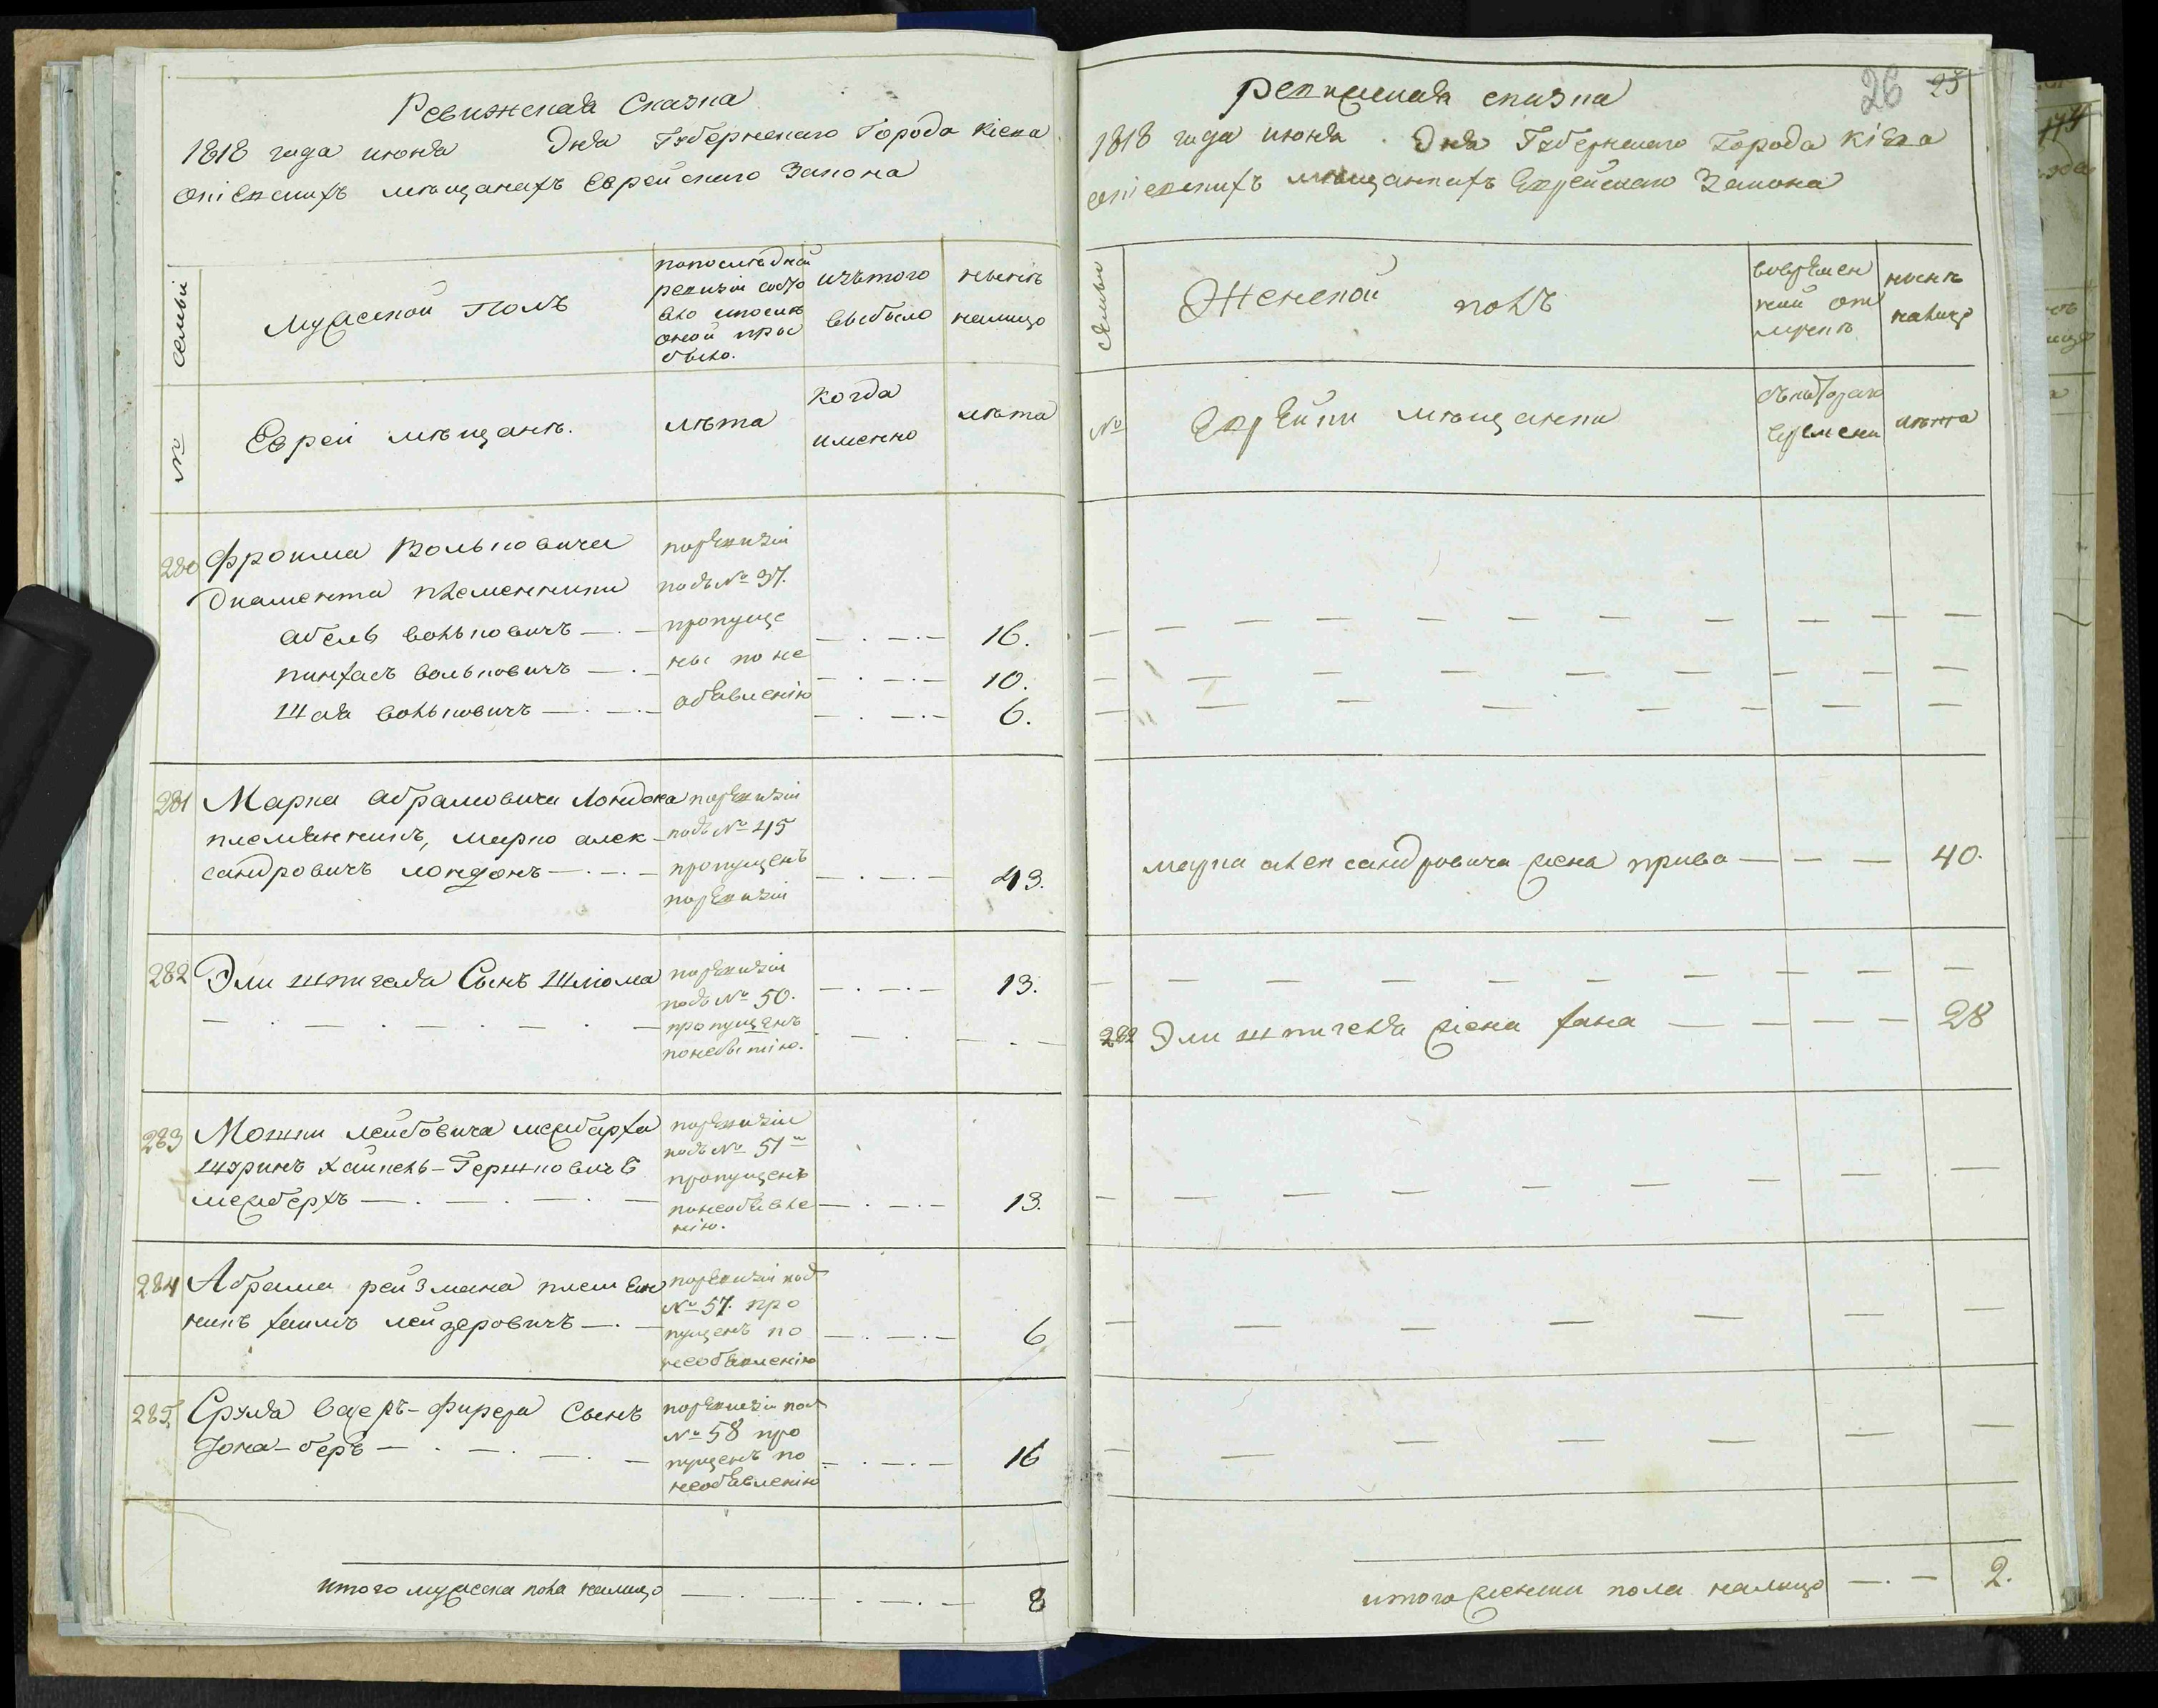 Ревижская Сказка
1818 года июня Дня Губернского Города Кіева
оттекстихъ мѣщанахъ Еврейского Закона
№ семьи
Мужеской Полъ
попоследней
ревизіи состо
яло ипослѣ
оной при
было.
изътого
выбыло
нынѣ
налицо
Евреи мѣщане.
лѣта
когда
именно
лѣта
280 Фроима Вольковича
Диамента племенники
абель вольковичъ — . — 16.
пинхасъ вольковичъ — . — 10.
Шая вольковичъ — . — . — 6.
поревизіи
подъ № 37.
пропуще
ны по не
объявленію
281 Марка абрамовича Лондона
племянникъ, марко алек-
сандровичъ лондонъ — . — . — 43.
поревизіи
подъ № 45
пропущенъ
поревизіи
282 Эли шпигеля Сынъ Шлиома 13.
поревизіи
подъ № 50.
пропущенъ
понебытію.
283 Мошки лейбовича межбарха
шуринъ хайкель-Гершковичъ
межберхъ — . — . — . — 13.
поревизіи
подъ № 51м
пропущенъ
понеобъявле
нію.
284 Абрама рейзмана племян
никъ хаимъ лейзеровичъ — . — 6
поревизіи подъ
№ 57. про
пущенъ по
необъявленію
285 Сруля васеръ-фирера Сынъ
Іона-беръ — . — . — . — 16
поревизіи подъ
№ 58 про
пущенъ по
необъявленію
итого мужеска пола налицо — . — . — 8
26 25
Ревижская сказка
1818 года июня Дня Губернского Города Кіева
мѣщанкахъ Еврейского Закона
№ семьи
Женской полъ
вовремен
ной от
лучкѣ
нынѣ
налицо
Еврейки мѣщанки
съкоторого
времени
лѣта
марка александровича жена прива — — — 40.
282 Эли шпигеля жена хана — — — — 28
итого женска пола налицо — . — 2.